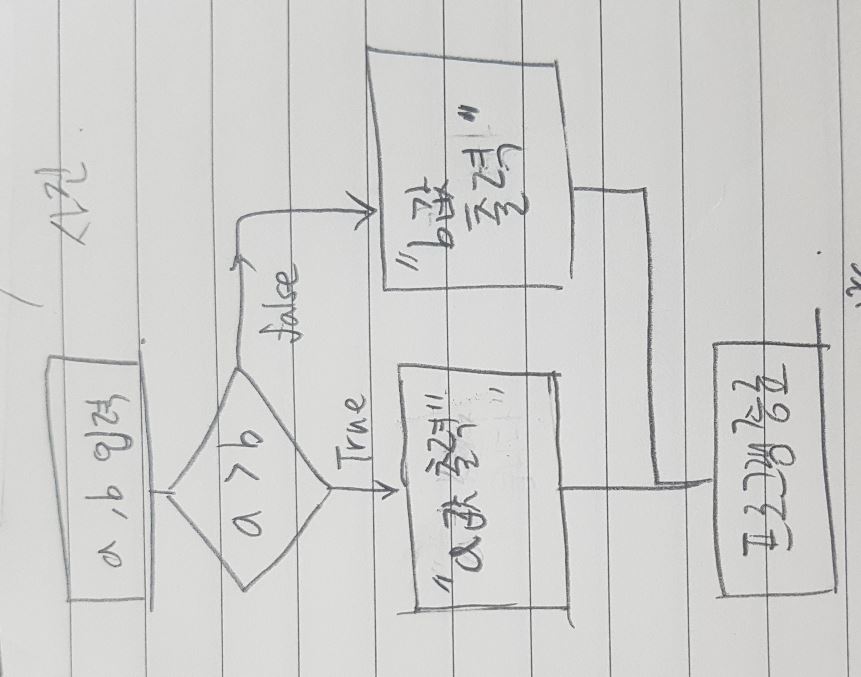 사진.
a, b 입력
a > b
false
True
"a값 출력"
"
"b값
출력"
프로그램 종료